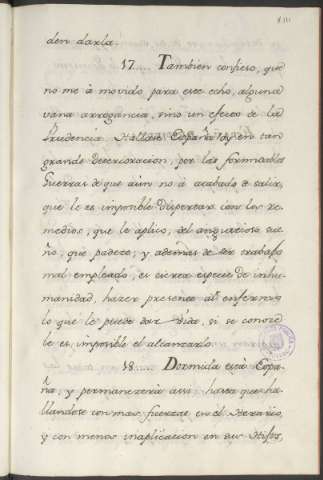 den darla.
17.... Tambien confieso, que
no me á movido para este echo, alguna
vana arrogancia, sino un efecto de la
Prudencia. Hallase España oy en tan
grande deterioracion, por las formidables
Guerras de que aun no á acabado de salir,
que le es imposible dispertar con los re-
medios, que le aplico, del angustioso sue-
ño, que padece; y además de ser trabajo
mal empleado, es cierta especie de inhu-
manidad, hazer presente al enfermo
lo que le puede dar vida, si se conoce
le es imposible el alcanzarlo.
18. Dormida está Espa-
ña, y permanezerá assi hasta que ha-
llandose con mas fuerzas en el Herario,
y con menos inaplicacion en sus Hijos,